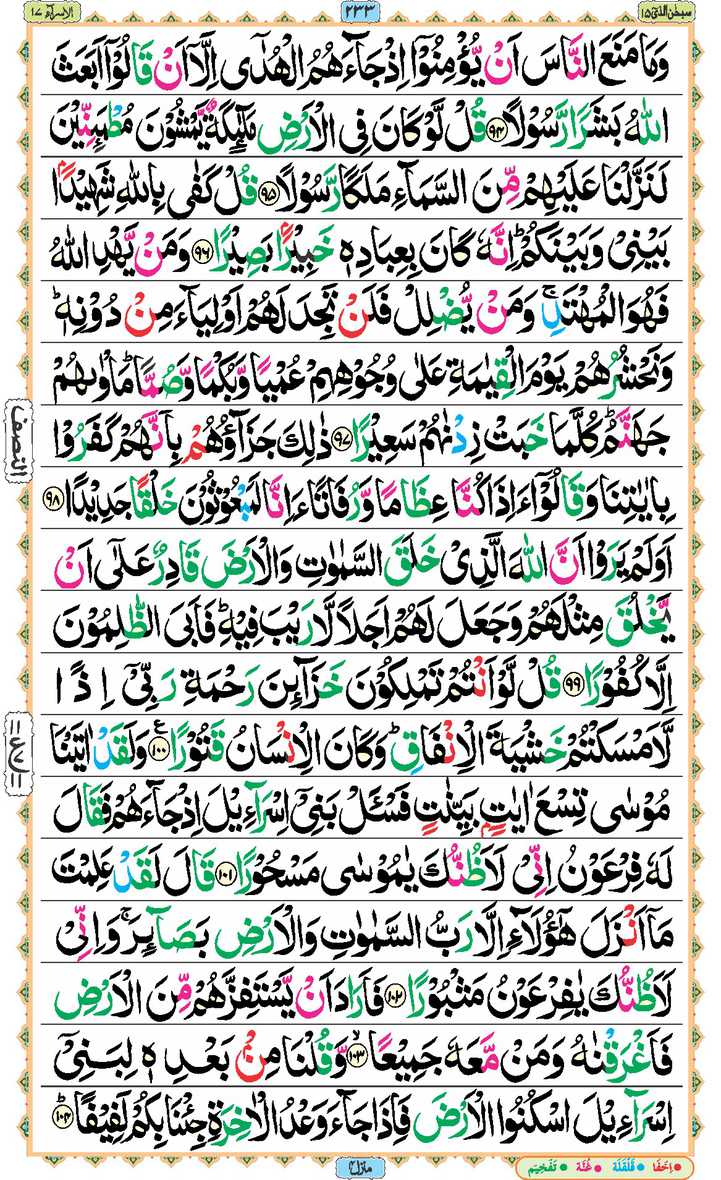 سبحٰن الذیٓ ۱۵
۲۳۳
الاسرآء ۱۷
وَمَا مَنَعَ النَّاسَ اَنْ یُّؤْمِنُوْۤا اِذْ جَآءَهُمُ الْهُدٰۤی اِلَّاۤ اَنْ قَالُوْۤا اَبَعَثَ
اللّٰهُ بَشَرًا رَّسُوْلًا ﴿۹۴﴾ قُلْ لَّوْ كَانَ فِی الْاَرْضِ مَلٰٓىِٕكَةٌ یَّمْشُوْنَ مُطْمَىِٕنِّیْنَ
لَنَزَّلْنَا عَلَیْهِمْ مِّنَ السَّمَآءِ مَلَكًا رَّسُوْلًا ﴿۹۵﴾ قُلْ كَفٰی بِاللّٰهِ شَهِیْدًۢا
بَیْنِیْ وَبَیْنَكُمْ ؕ اِنَّهٗ كَانَ بِعِبَادِهٖ خَبِیْرًۢا بَصِیْرًا ﴿۹۶﴾ وَمَنْ یَّهْدِ اللّٰهُ
فَهُوَ الْمُهْتَدِ ۚ وَمَنْ یُّضْلِلْ فَلَنْ تَجِدَ لَهُمْ اَوْلِیَآءَ مِنْ دُوْنِهٖ ؕ
وَنَحْشُرُهُمْ یَوْمَ الْقِیٰمَةِ عَلٰی وُجُوْهِهِمْ عُمْیًا وَّبُكْمًا وَّصُمًّا ؕ مَاْوٰىهُمْ
جَهَنَّمُ ؕ كُلَّمَا خَبَتْ زِدْنٰهُمْ سَعِیْرًا ﴿۹۷﴾ ذٰلِكَ جَزَآؤُهُمْ بِاَنَّهُمْ كَفَرُوْا
النصف
بِاٰیٰتِنَا وَقَالُوْۤا ءَاِذَا كُنَّا عِظَامًا وَّرُفَاتًا ءَاِنَّا لَمَبْعُوْثُوْنَ خَلْقًا جَدِیْدًا ﴿۹۸﴾
اَوَلَمْ یَرَوْا اَنَّ اللّٰهَ الَّذِیْ خَلَقَ السَّمٰوٰتِ وَالْاَرْضَ قَادِرٌ عَلٰۤی اَنْ
یَّخْلُقَ مِثْلَهُمْ وَجَعَلَ لَهُمْ اَجَلًا لَّا رَیْبَ فِیْهِ ؕ فَاَبَی الظّٰلِمُوْنَ
اِلَّا كُفُوْرًا ﴿۹۹﴾ قُلْ لَّوْ اَنْتُمْ تَمْلِكُوْنَ خَزَآىِٕنَ رَحْمَةِ رَبِّیْۤ اِذًا
لَّاَمْسَكْتُمْ خَشْیَةَ الْاِنْفَاقِ ؕ وَكَانَ الْاِنْسَانُ قَتُوْرًا ﴿۱۰۰﴾ ع وَلَقَدْ اٰتَیْنَا
مُوْسٰی تِسْعَ اٰیٰتٍۭ بَیِّنٰتٍ فَسْـَٔلْ بَنِیْۤ اِسْرَآءِیْلَ اِذْ جَآءَهُمْ فَقَالَ
لَهٗ فِرْعَوْنُ اِنِّیْ لَاَظُنُّكَ یٰمُوْسٰی مَسْحُوْرًا ﴿۱۰۱﴾ قَالَ لَقَدْ عَلِمْتَ
مَاۤ اَنْزَلَ هٰۤؤُلَآءِ اِلَّا رَبُّ السَّمٰوٰتِ وَالْاَرْضِ بَصَآىِٕرَ ۚ وَاِنِّیْ
لَاَظُنُّكَ یٰفِرْعَوْنُ مَثْبُوْرًا ﴿۱۰۲﴾ فَاَرَادَ اَنْ یَّسْتَفِزَّهُمْ مِّنَ الْاَرْضِ
فَاَغْرَقْنٰهُ وَمَنْ مَّعَهٗ جَمِیْعًا ﴿۱۰۳﴾ ۙ وَّقُلْنَا مِنْۢ بَعْدِهٖ لِبَنِیْۤ
اِسْرَآءِیْلَ اسْكُنُوا الْاَرْضَ فَاِذَا جَآءَ وَعْدُ الْاٰخِرَةِ جِئْنَا بِكُمْ لَفِیْفًا ﴿۱۰۴﴾ ؕ
منزل ۴
اِخْفَا قَلْقَلَة غُنَّة تَفْخِيْم